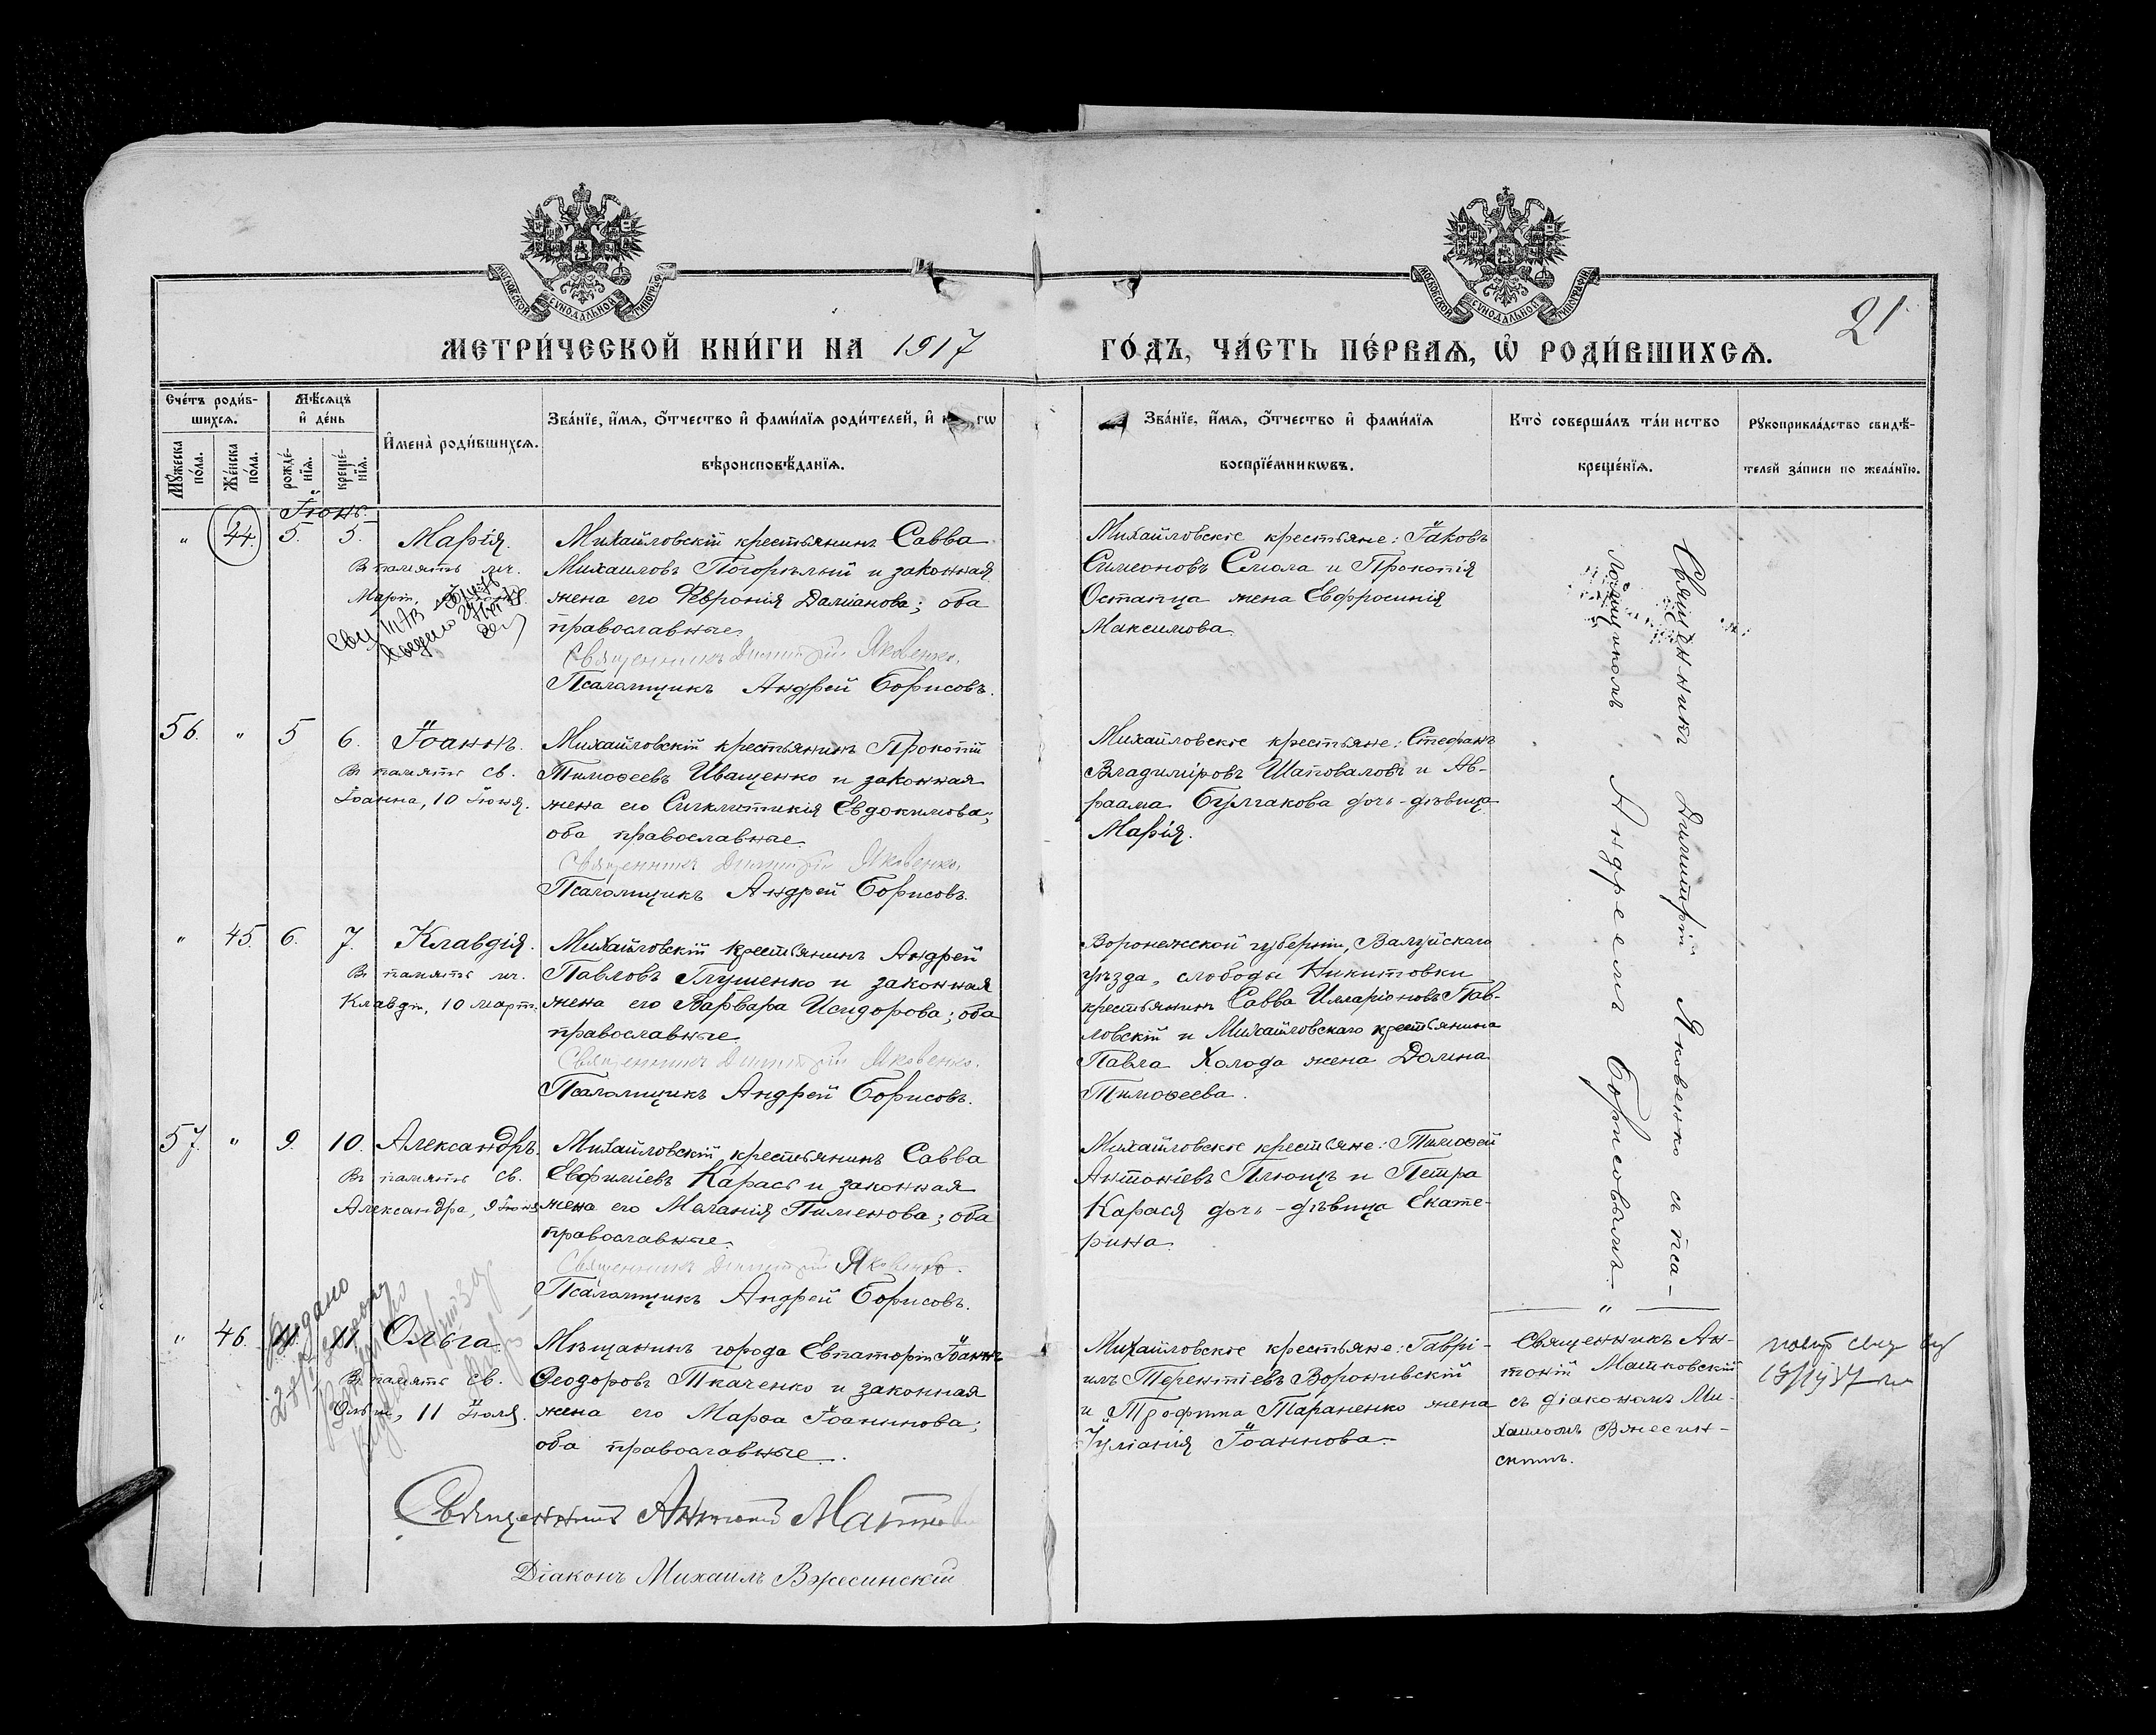 МОСКОВСКОЙ СѴНОДАЛЬНОЙ ТИПОГРАФІИ
МОСКОВСКОЙ СѴНОДАЛЬНОЙ ТИПОГРАФІИ
21
МЕТРИ́ЧЕСКОЙ КНИ́ГИ НА 1917
ГО́ДЪ, ЧА́СТЬ ПЕ́РВАѦ, Ѽ РОДИ́ВШИХСѦ.
Сче́тъ роди́в-
шихсѧ.
Мѣ́сѧцъ
и҆ де́нь
Мꙋ́жеска
по́ла.
Же́нска
по́ла.
рожде́-
нїѧ.
креще́-
нїѧ.
И҆мена̀ роди́вшихсѧ.
Зва́нїе, и҆́мѧ, ѻ҆́тчество и҆ фами́лїѧ роди́телей, и҆
вѣроисповѣ́данїѧ.
Зва́нїе, и҆́мѧ, ѻ҆́тчество и҆ фами́лїѧ
воспрїе́мникѡвъ.
Кто̀ соверша́лъ та́инство
креще́нїѧ.
Рꙋкоприкла́дство свидѣ́-
телей за́писи по жела́нїю.
Іюнь.
" 44. 5. 5. Марія.
Въ память мч.
Михайловскій крестьянинъ Савва
Михаиловъ Погорѣлый и законная
жена его Феврониія Даміанова; оба
православные.
Священникъ Димитрій Яковенко.
Псаломщикъ Андрей Борисовъ.
Михайловскіе крестьяне: Іаковъ
Симеоновъ Смола и Прокопія
Остапца жена Евфросинія
Максимова.
Священникъ Димитрій Яковенко съ пса-
ломщикомъ Андреемъ Борисовымъ.
56. " 5 6. Іоаннъ.
Въ память св.
Іоанна, 10 Іюня.
Михайловскій крестьянинъ Прокопій
Тимоѳеевъ Иващенко и законная
жена его Синклитикія Евдокимова;
оба православные.
Священникъ Димитрій Яковенко.
Псаломщикъ Андрей Борисовъ.
Михайловскіе крестьяне: Стефанъ
Владиміровъ Шаповаловъ и Ав-
раама Булгакова дочь-дѣвица
Марія.
" 45. 6. 7. Клавдія.
Въ память мч.
Клавдіи, 10 март.
Михайловскій крестьянинъ Андрей
Павловъ Глушенко и законная
жена его Варвара Исидорова; оба
православные.
Священникъ Димитрій Яковенко.
Псаломщикъ Андрей Борисовъ.
Воронежской губерніи, Валуйскаго
уѣзда, слободы Никитовки
крестьянинъ Савва Илларіоновъ Пав-
ловскій и Михайловскаго крестьянина
Павла Холода жена Домна
Тимоѳеева.
57. " 9. 10. Александръ.
Въ память св.
Александра, 9 Іюня
Михайловскій крестьянинъ Савва
Евфиміевъ Карась и законная
жена его Меланія Пименова; оба
православные.
Священникъ Димитрій Яковенко.
Псаломщикъ Андрей Борисовъ.
Михайловскіе крестьяне: Тимоѳей
Антоніевъ Плющъ и Петра
Карася дочь-дѣвица Екате-
рина.
"
" 46. 11. 11. Ольга.
Въ память св.
Ольги, 11 Іюля.
Выдано
Мѣщанинъ города Евпаторіи Іоаннъ
Ѳеодоровъ Ткаченко и законная
жена его Марѳа Іоаннова;
оба православные.
Михайловскіе крестьяне: Гаврі-
илъ Терентіевъ Воронивскій
и Трофима Тараненко жена
Іуліанія Іоаннова.
Священникъ Ан-
тоній Машковскій
съ діакономъ Ми-
хаиломъ Вжесин-
скимъ.
Священникъ Антоній
Діаконъ Михаилъ Вжесинскій